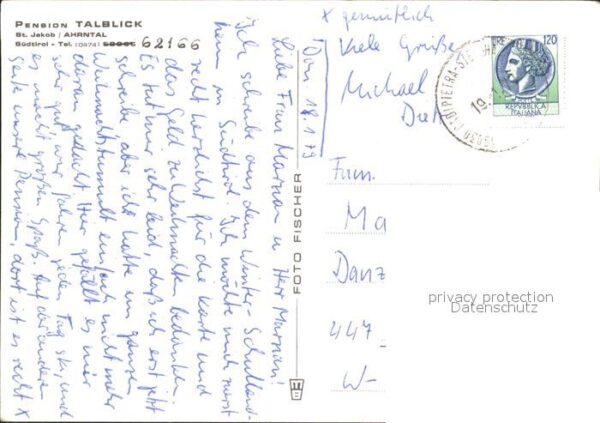 PENSION TALBLICK
St. Jakob / AHRNTAL
Südtirol - Tel. (0474) 62166
Don 18.1.79
Liebe Frau Marman u Herr Marman!
Ich schreibe aus dem Winter-Schulland-
heim in Südtirol. Ich möchte mich zuerst
recht herzlich für die Karte und
das Geld zu Weihnachten bedanken.
Es tut mir sehr leid, daß ich erst jetzt
schreibe aber ich hatte im ganzen
Weihnachtstrummel einfach nicht mehr
daran gedacht. Hier gefällt es mir
sehr gut wir fahren jeden Tag ski, und
es macht großen Spaß. Auf der anderen
Seite unsere Pension, dort ist es recht x
x gemütlich
Viele Grüße
Michael
Diet
FOTO FISCHER
120
REPVBBLICA
ITALIANA
Fam.
Ma
Danz
447
W-
privacy protection
Datenschutz